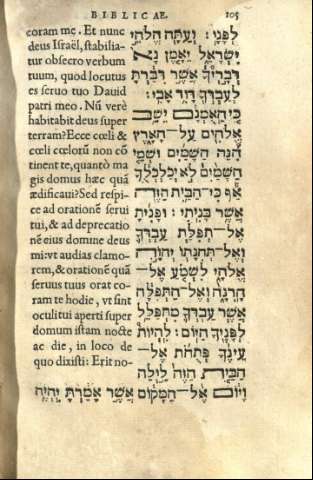 BIBLICAE. 105
coram me. Et nunc
deus Israël, stabilia-
tur obsecro verbum
tuum, quod locutus
es seruo tuo Dauid
patri meo. Nũ verè
habitabit deus super
terram? Ecce cœli &
cœli cœlorũ non cõ
tinent te, quantò ma
gis domus hæc quã
ædificaui? Sed respi-
ce ad orationẽ serui
tui, & ad deprecatio
nẽ eius domine deus
mi: vt audias clamo-
rem, & orationẽ quã
seruus tuus orat co-
ram te hodie, vt sint
oculi tui aperti super
domum istam nocte
ac die, in loco de
quo dixisti: Erit no-
לְפָנָי: וְעַתָּה אֱלֹהֵי
יִשְׂרָאֵל יֵאָמֶן נָא
דְּבָרְךָ אֲשֶׁר דִּבַּרְתָּ
לְעַבְדְּךָ דָּוִד אָבִי:
כִּי הַאֻמְנָם יֵשֵׁב
אֱלֹהִים עַל־הָאָרֶץ
הִנֵּה הַשָּׁמַיִם וּשְׁמֵי
הַשָּׁמַיִם לֹא יְכַלְכְּלוּךָ
אַף כִּי־הַבַּיִת הַזֶּה
אֲשֶׁר בָּנִיתִי: וּפָנִיתָ
אֶל־תְּפִלַּת עַבְדְּךָ
וְאֶל־תְּחִנָּתוֹ יְהוָה
אֱלֹהָי לִשְׁמֹעַ אֶל־
הָרִנָּה וְאֶל־הַתְּפִלָּה
אֲשֶׁר עַבְדְּךָ מִתְפַּלֵּל
לְפָנֶיךָ הַיּוֹם: לִהְיוֹת
עֵינֶךָ פְּתֻחֹת אֶל־
הַבַּיִת הַזֶּה לַיְלָה
וָיוֹם אֶל־הַמָּקוֹם אֲשֶׁר אָמַרְתָּ יִהְיֶה